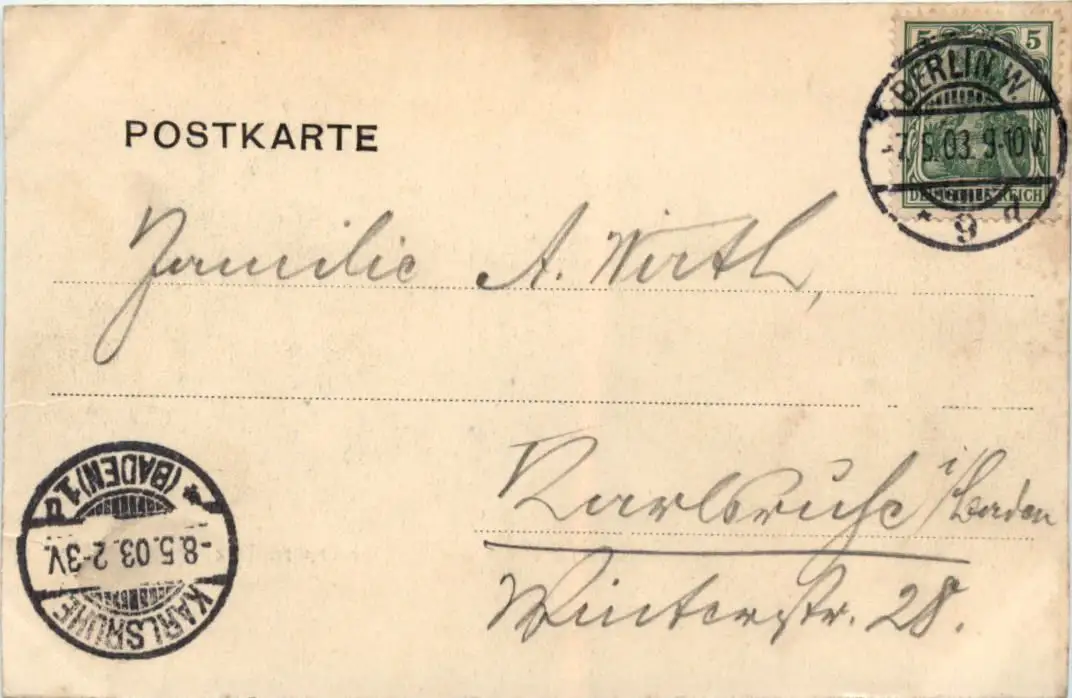 5 5
BERLIN. W.
-7.5.03. 9-10V.
DEUTSCHES REICH
* 9 d
POSTKARTE
Familie A. Wirth,
Karlsruhe i/Baden
Winterstr. 28.
KARLSRUHE
-8.5.03. 2-3V.
* (BADEN) 1.